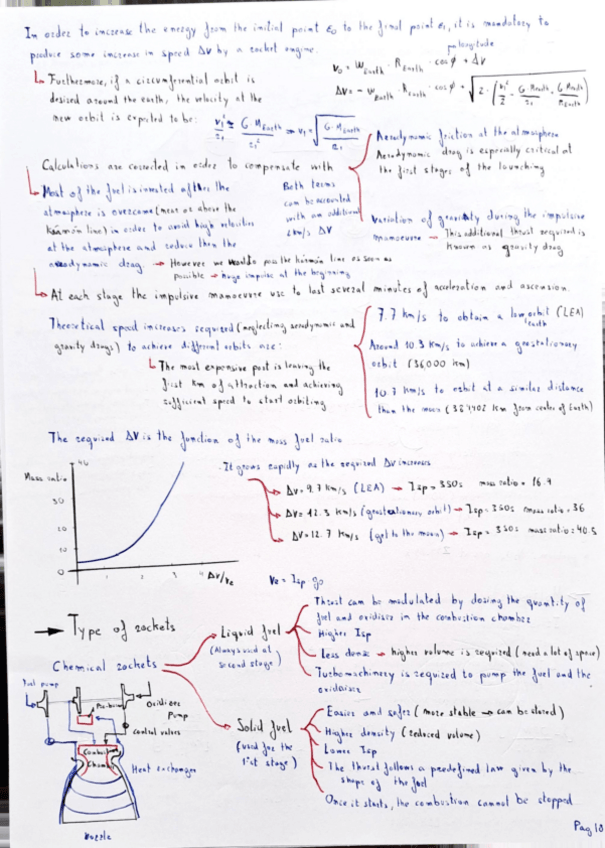 In order to increase the energy from the initial point ε0 to the final point ε1, it is mandatory to
produce some increase in speed ΔV by a rocket engine.
longitude
V0 = WEarth · REarth · cos φ + ΔV
Furthermore, if a circumferential orbit is
desired around the earth, the velocity at the
new orbit is expected to be:
ΔV = - WEarth · REarth · cos φ + √(2 · (V1²/2 - G·MEarth/r1 + G·MEarth/REarth))
V1²/r1 = G·MEarth/r1² ⇒ V1 = √(G·MEarth/r1)
Calculations are corrected in order to compensate with
Aerodynamic friction at the atmosphere
Aerodynamic drag is especially critical at
the first stages of the launching
Variation of gravity during the impulsive
manoeuvre → This additional thrust required is
known as gravity drag
Both terms
can be accounted
with an additional
2km/s ΔV
Most of the fuel is invested after the
atmosphere is overcome (mean as above the
Kármán line) in order to avoid high velocities
at the atmosphere and reduce then the
aerodynamic drag → However we would pass the Kármán line as soon as
possible → huge impulse at the beginning
At each stage the impulsive manoeuvre use to last several minutes of acceleration and ascension.
Theoretical speed increases required (neglecting aerodynamic and
gravity drags) to achieve different orbits are:
7.7 km/s to obtain a low earth orbit (LEA)
Around 10.3 km/s to achieve a geostationary
orbit (36,000 km)
10.7 km/s to orbit at a similar distance
than the moon (384402 km from center of Earth)
The most expensive part is leaving the
first km of attraction and achieving
sufficient speed to start orbiting
The required ΔV is the function of the mass fuel ratio
Mass ratio
40
30
20
10
0
1
2
3
4
ΔV/Ve
It grows rapidly as the required ΔV increases
ΔV = 9.7 km/s (LEA) → Isp = 350s mass ratio = 16.9
ΔV = 12.3 km/s (geostationary orbit) → Isp = 350s mass ratio = 36
ΔV = 12.7 km/s (get to the moon) → Isp = 350s mass ratio = 40.5
Ve = Isp · g0
→ Type of rockets
Chemical rockets
Liquid fuel
(Always used at
second stage)
Thrust can be modulated by dosing the quantity of
fuel and oxidizer in the combustion chamber
Higher Isp
Less dense → higher volume is required (need a lot of space)
Turbomachinery is required to pump the fuel and the
oxidizer
Solid fuel
(used for the
1st stage)
Easier and safer (more stable → can be stored)
Higher density (reduced volume)
Lower Isp
The thrust follows a predefined law given by the
shape of the fuel
Once it starts, the combustion cannot be stopped
Fuel pump
Oxidizer
Pump
control valves
Combust
Chamber
Heat exchanger
Nozzle
Pag 10